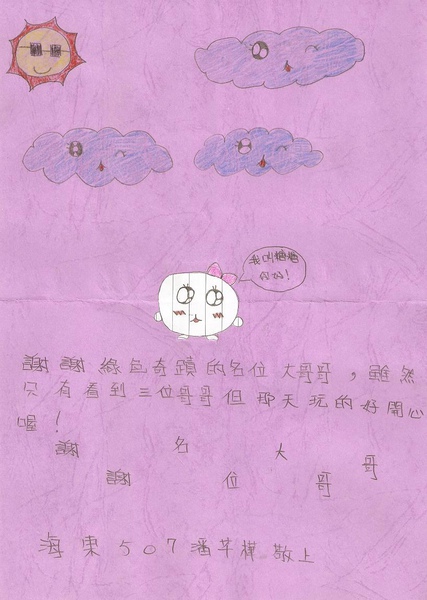 我叫糖糖
你好!
謝謝綠色奇蹟的名位大哥哥,雖然
只有看到三位哥哥但那天玩的好開心
喔!
謝謝名位大哥哥
海東507潘樺敬上